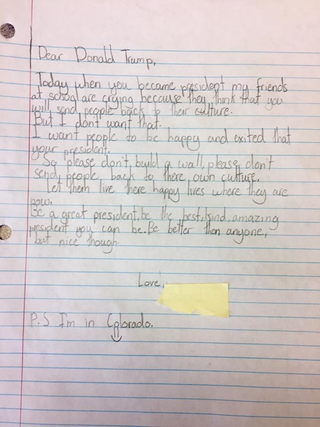 Dear Donald Trump,
Today when you became president my friends
at school are crying because they think that you
will send people back to their culture.
But I dont want that.
I want people to be happy and exited that
your president.
So please don't, build a wall, please don't
send people, back to there, own culture.
Let them live there happy lives where they are
now.
Be a great president, be the best, kind, amazing
president you can be. Be better then anyone,
but nice though
Love,
P.S I'm in Colorado.